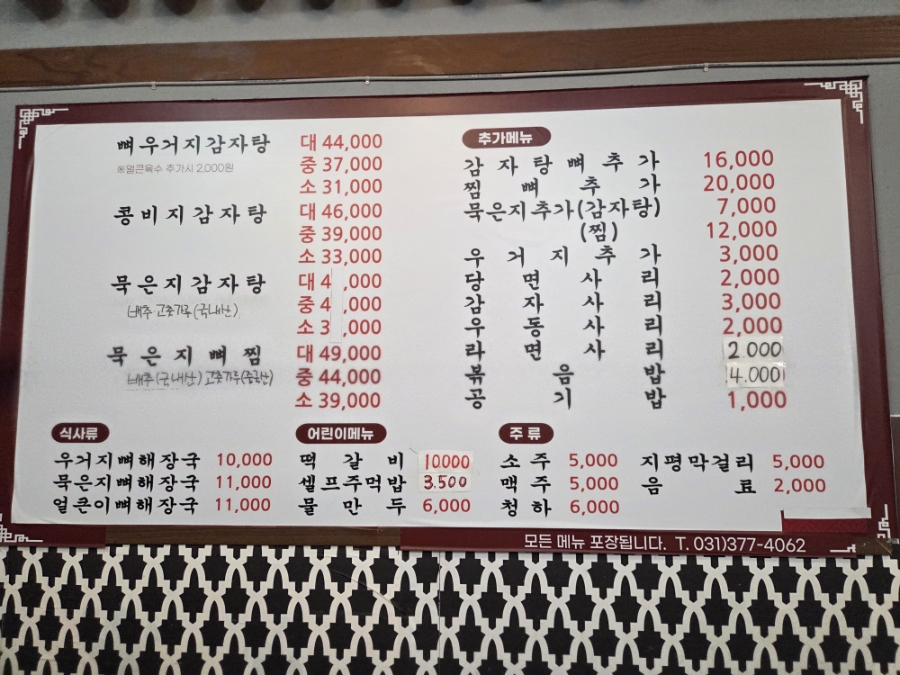 뼈우거지감자탕 대 44,000
※얼큰육수 추가시 2,000원 중 37,000
소 31,000
콩비지감자탕 대 46,000
중 39,000
소 33,000
묵은지감자탕 대 4 ,000
배추 고춧가루(국내산) 중 4 ,000
소 3 ,000
묵은지뼈찜 대 49,000
배추(국내산) 고춧가루(중국산) 중 44,000
소 39,000
추가메뉴
감자탕뼈추가 16,000
찜뼈추가 20,000
묵은지추가(감자탕) 7,000
(찜) 12,000
우거지추가 3,000
당면사리 2,000
감자사리 3,000
우동사리 2,000
라면사리 2.000
볶음밥 4.000
공기밥 1,000
식사류
우거지뼈해장국 10,000
묵은지뼈해장국 11,000
얼큰이뼈해장국 11,000
어린이메뉴
떡갈비 10.000
셀프주먹밥 3.500
물만두 6,000
주류
소주 5,000 지평막걸리 5,000
맥주 5,000 음료 2,000
청하 6,000
모든 메뉴 포장됩니다. T. 031)377-4062